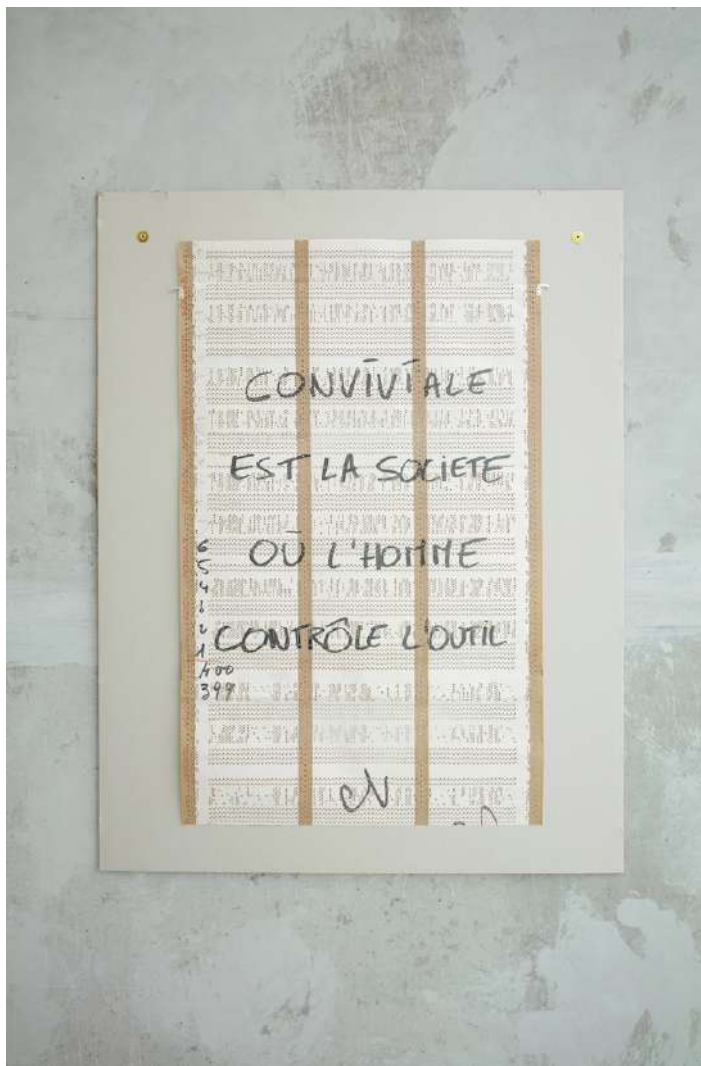 CONVIVIALE
EST LA SOCIETE
OÙ L'HOMME
CONTRÔLE L'OUTIL
6
5
4
3
2
1
400
399